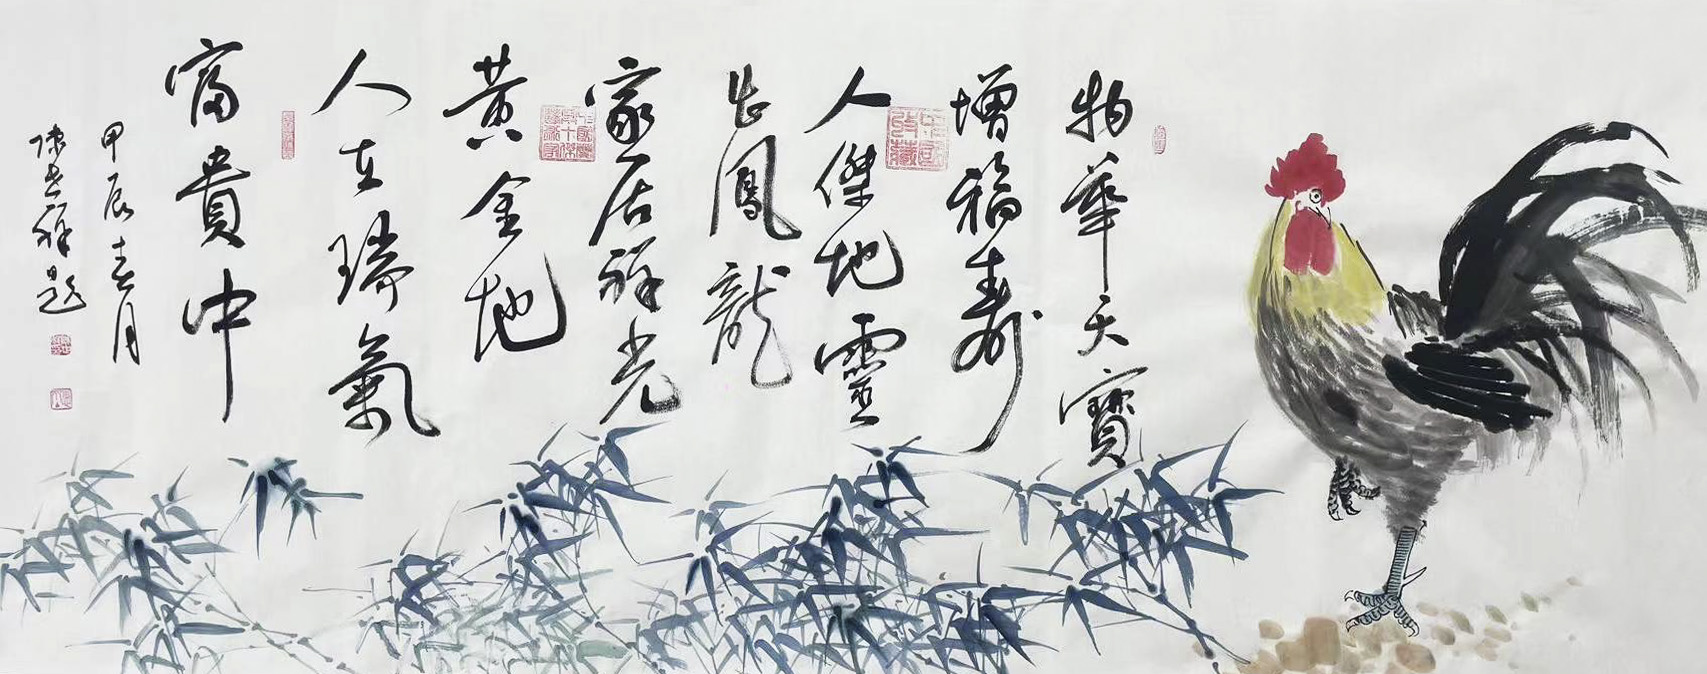 物華天寶
增福壽
人傑地靈
出鳳龍
家居祥光
黃金地
人在瑞氣
富貴中
甲辰春月
陳志祥題